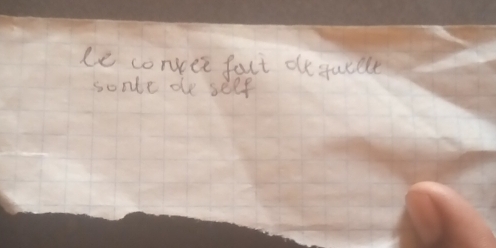 le conxcé fait de quelle
sorte de self